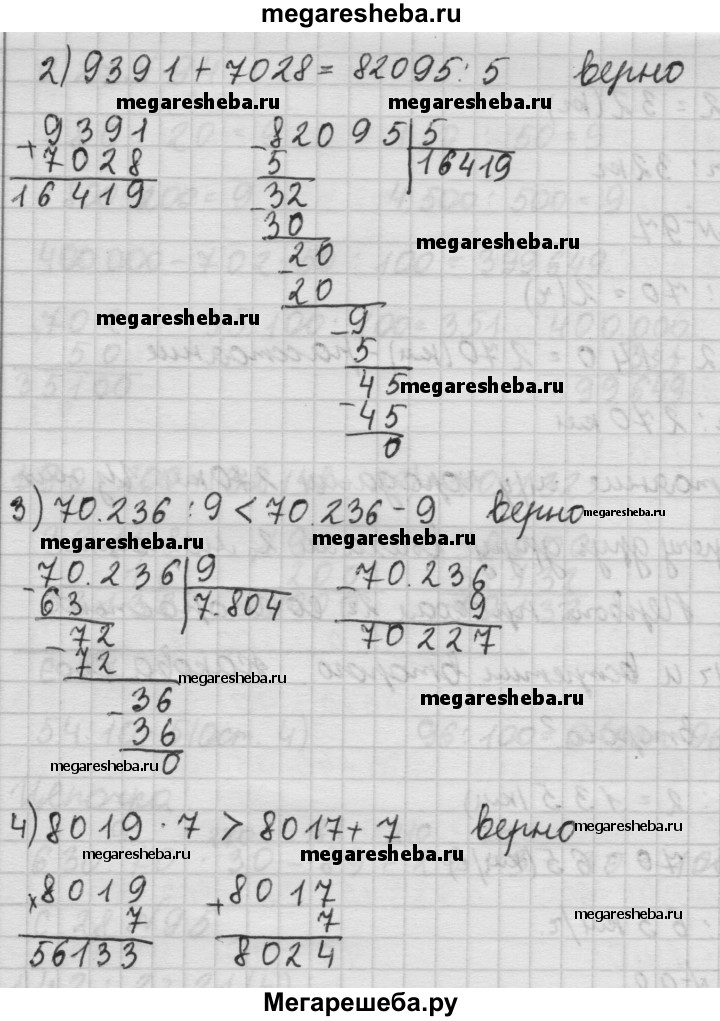 megaresheba.ru
2) 9391 + 7028 = 82095 : 5 верно
megaresheba.ru megaresheba.ru
+ 9391
7028
16419
- 82095 | 5
5 16419
- 32
30
megaresheba.ru
- 20
20
megaresheba.ru
- 9
5
45 megaresheba.ru
- 45
0
3) 70.236 : 9 < 70.236 - 9 верно megaresheba.ru
megaresheba.ru megaresheba.ru
- 70.236 | 9
63 7.804
- 72
72 megaresheba.ru
- 36
36
megaresheba.ru 0
- 70.236
9
70227
megaresheba.ru
4) 8019 · 7 > 8017 + 7 верно megaresheba.ru
megaresheba.ru megaresheba.ru megaresheba.ru
x 8019
7
56133
+ 8017
7
8024
megaresheba.ru
Мегарешеба.ру